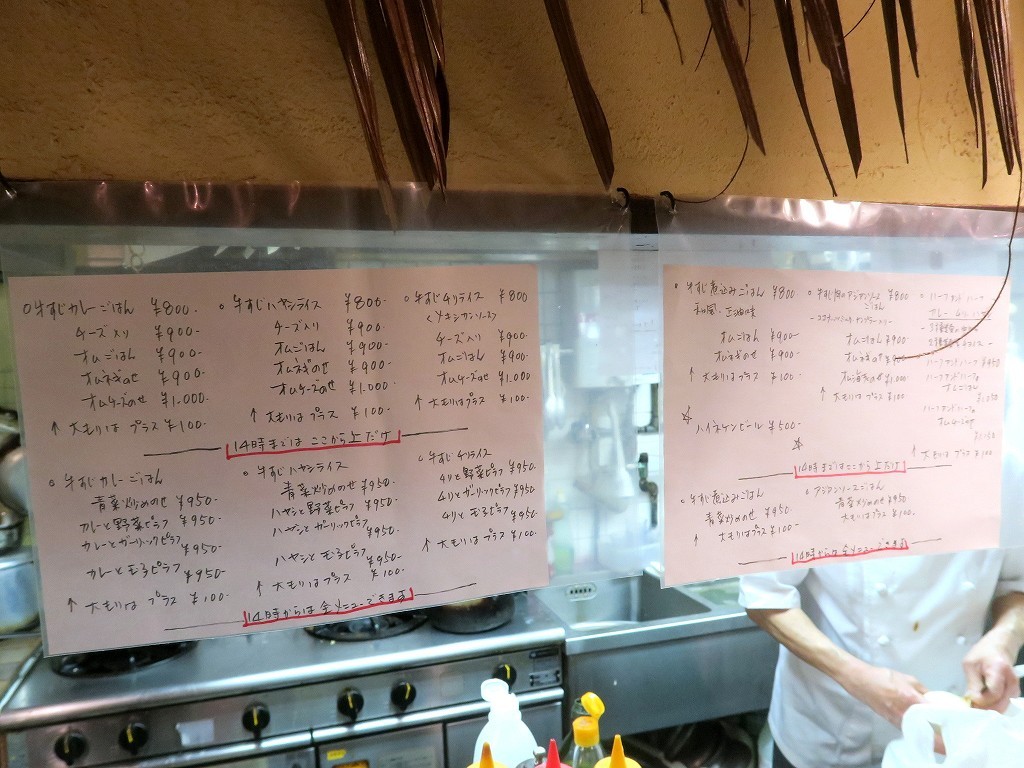 ○牛すじカレーごはん ¥800-
チーズ入り ¥900-
オムごはん ¥900-
オムネギのせ ¥900-
オムチーズのせ ¥1.000-
↑ 大もりは プラス ¥100-
○牛すじハヤシライス ¥800-
チーズ入り ¥900-
オムごはん ¥900-
オムネギのせ ¥900-
オムチーズのせ ¥1.000-
↑ 大もりは プラス ¥100-
○牛すじチリライス ¥800
<メキシカンソース>
チーズ入り ¥900-
オムごはん ¥900-
オムチーズのせ ¥1.000
↑ 大もりは プラス ¥100-
14時までは ここから上だけ
○牛すじ カレーごはん
青菜炒めのせ ¥950-
カレーと野菜ピラフ ¥950-
カレーとガーリックピラフ ¥950-
カレーと玉子ピラフ ¥950-
↑ 大もりは プラス ¥100-
○牛すじ ハヤシライス
青菜炒めのせ ¥950-
ハヤシと野菜ピラフ ¥950-
ハヤシとガーリックピラフ ¥950-
ハヤシと玉子ピラフ ¥950-
↑ 大もりは プラス ¥100-
○牛すじ チリライス
チリと野菜ピラフ ¥950-
チリとガーリックピラフ ¥950-
チリと玉子ピラフ ¥950-
↑ 大もりは プラス ¥100-
14時からは 全メニューできます
○牛すじ煮込みごはん ¥800
オムごはん ¥900-
オムネギのせ ¥900-
↑ 大もりは プラス ¥100-
☆
ハイネケンビール ¥500-
○牛すじ アジアンソースごはん ¥800
オムごはん ¥900
↑ 大もりは プラス ¥100
☆
○ハーフ アンド ハーフ
ハーフアンドハーフ ¥950
ハーフアンドハーフの
オムごはん
¥1.050
ハーフアンドハーフの
↑ 大もりは プラス ¥100
14時まではここから上だけ
○牛すじ煮込みごはん
青菜炒めのせ ¥950-
↑ 大もりは プラス ¥100-
○アジアンソースごはん
青菜炒めのせ ¥950
大もりは プラス ¥100-
14時からは 全メニューできます